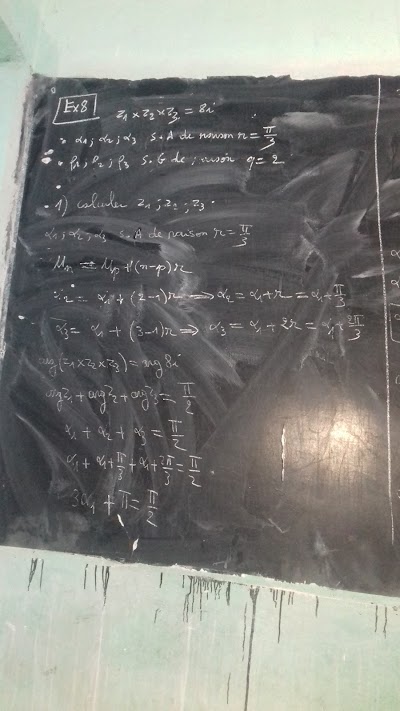 Ex8
z1 × z2 × z3 = 8i
• α1, α2, α3 S.A de raison r = π/3
• ρ1, ρ2, ρ3 S.G de raison q = 2
• 1) calculer z1; z2; z3.
α1; α2; α3 S.A de raison r = π/3
Un = Up + (n-p)r
α2 = α1 + (2-1)r ⟹ α2 = α1 + r = α1 + π/3
α3 = α1 + (3-1)r ⟹ α3 = α1 + 2r = α1 + 2π/3
arg(z1 × z2 × z3) = arg 8i
arg z1 + arg z2 + arg z3 = π/2
α1 + α2 + α3 = π/2
α1 + α1 + π/3 + α1 + 2π/3 = π/2
3α1 + π = π/2